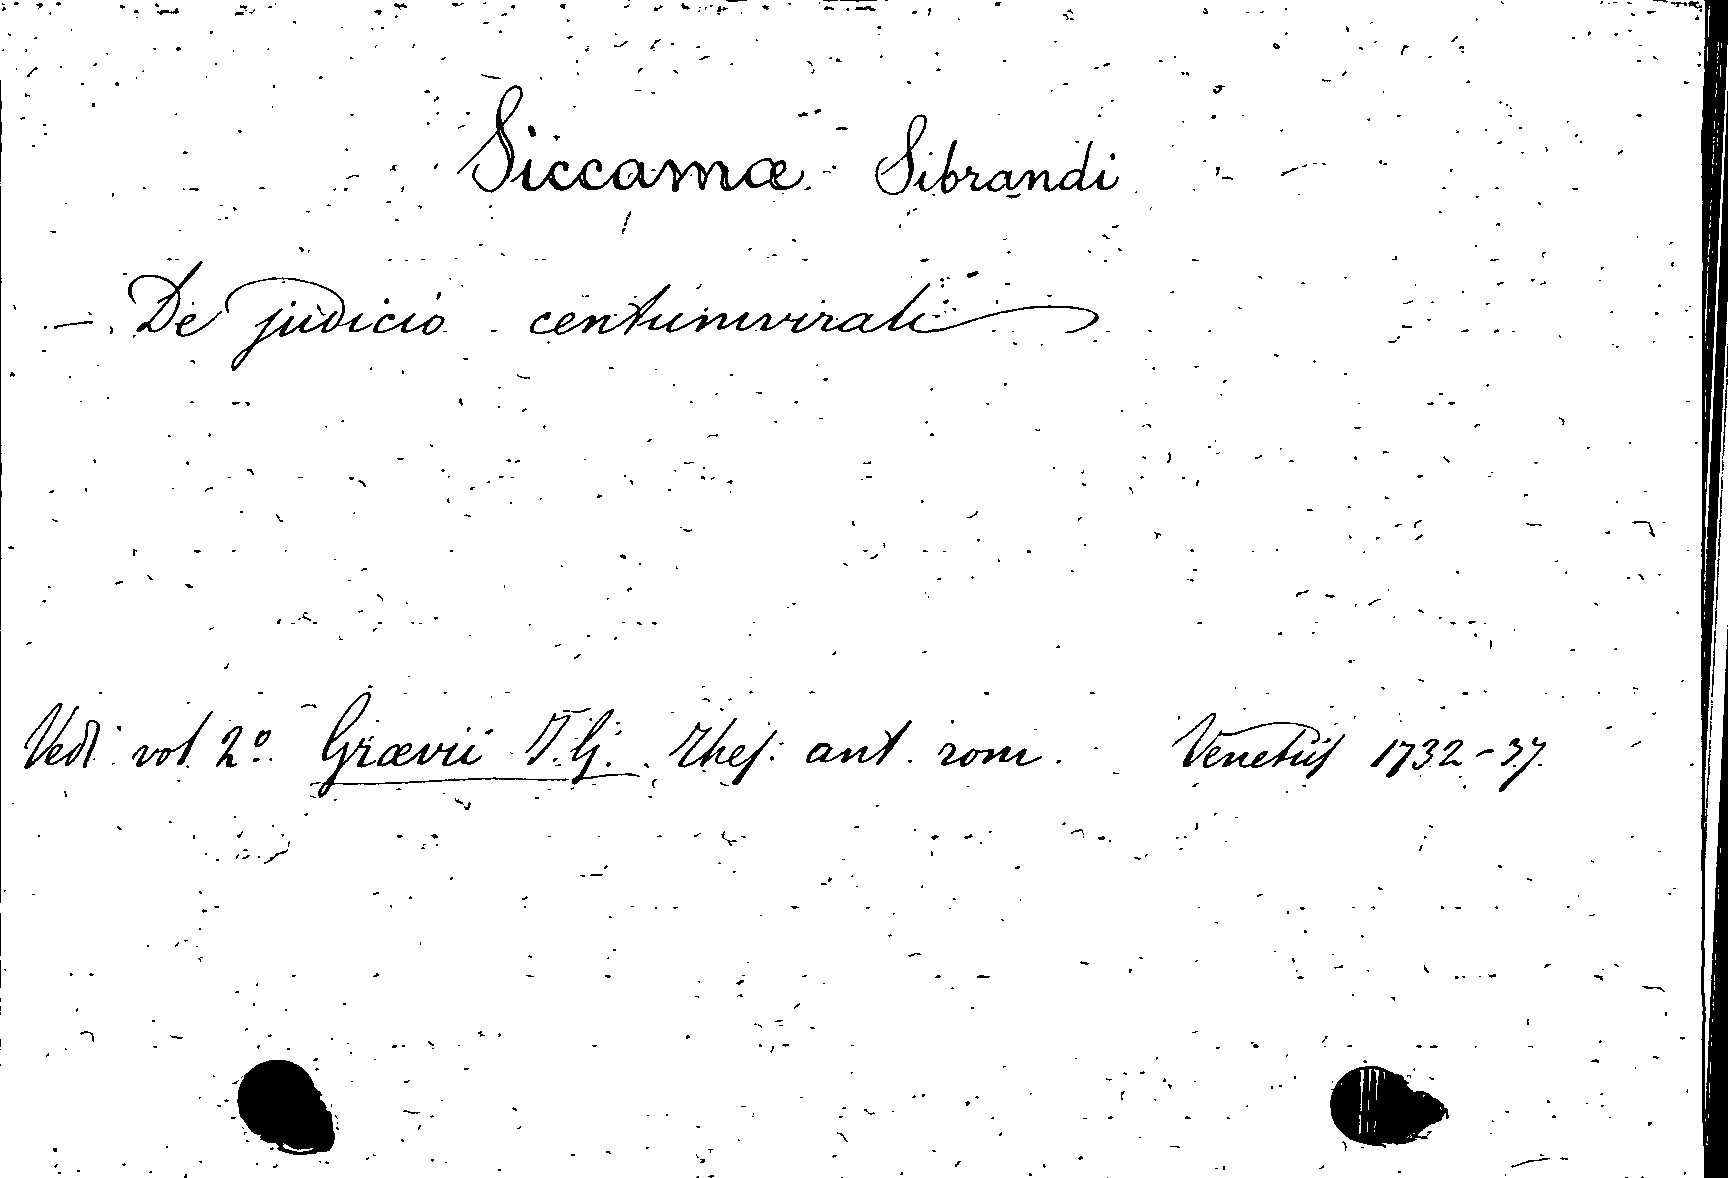 Siccamæ Sibrandi
— De judicio centumvirali
Vedi vol. 2º Grævii T. G. Thes. ant. rom. Venetiis 1732-37